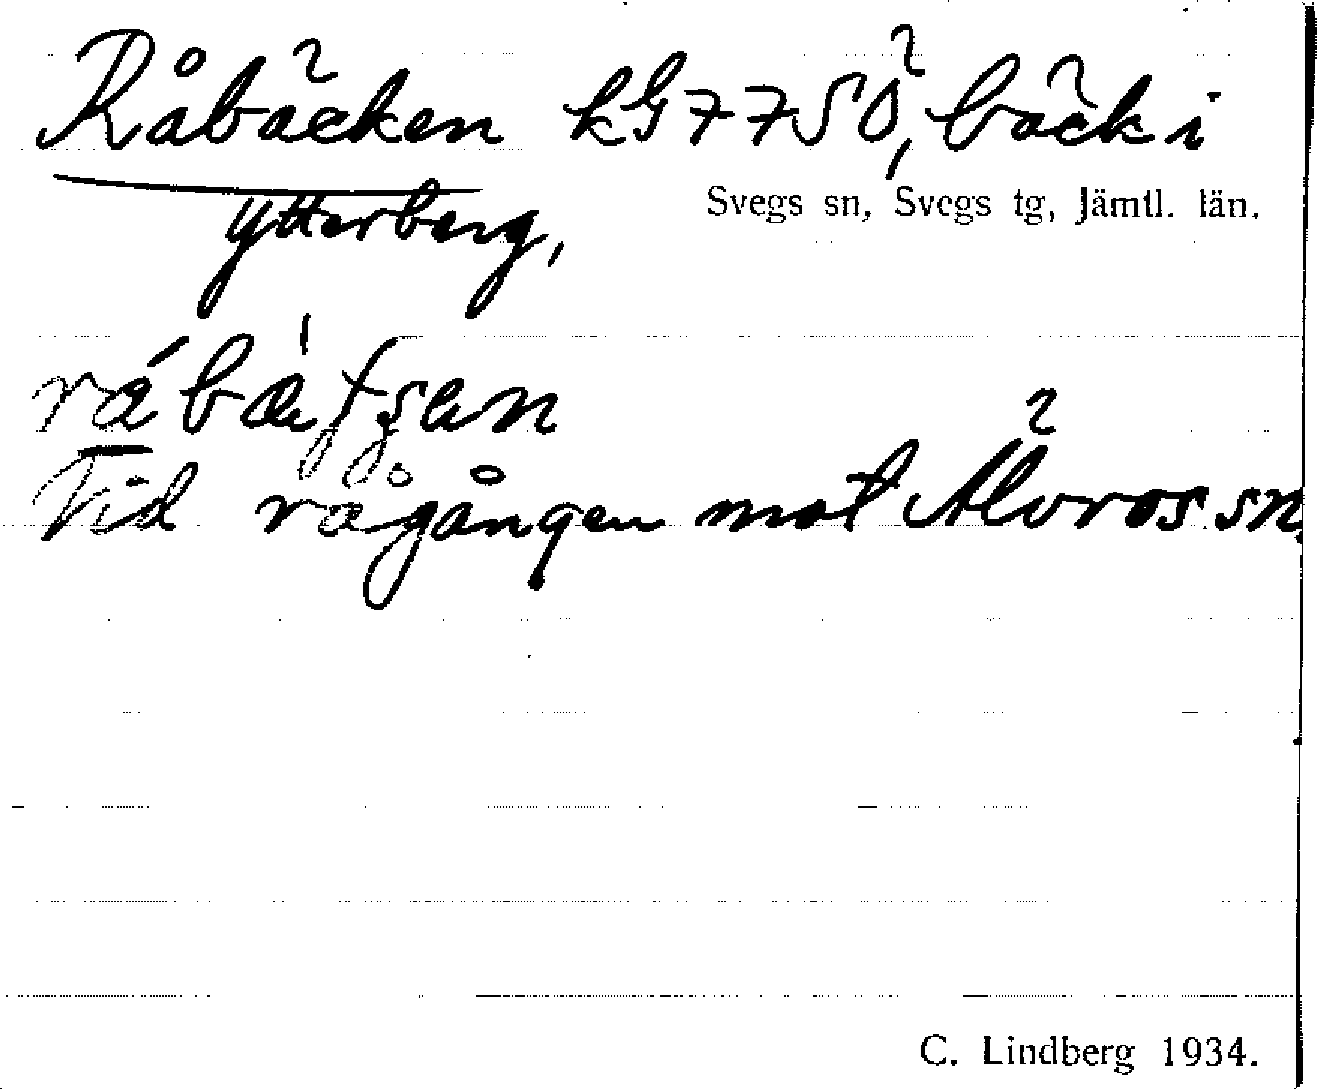 Råbäcken kG77SÖ, bäck i
Ytterberg, Svegs sn, Svegs tg, Jämtl. län.
Vid rågången mot Älvros sn,
C. Lindberg 1934.